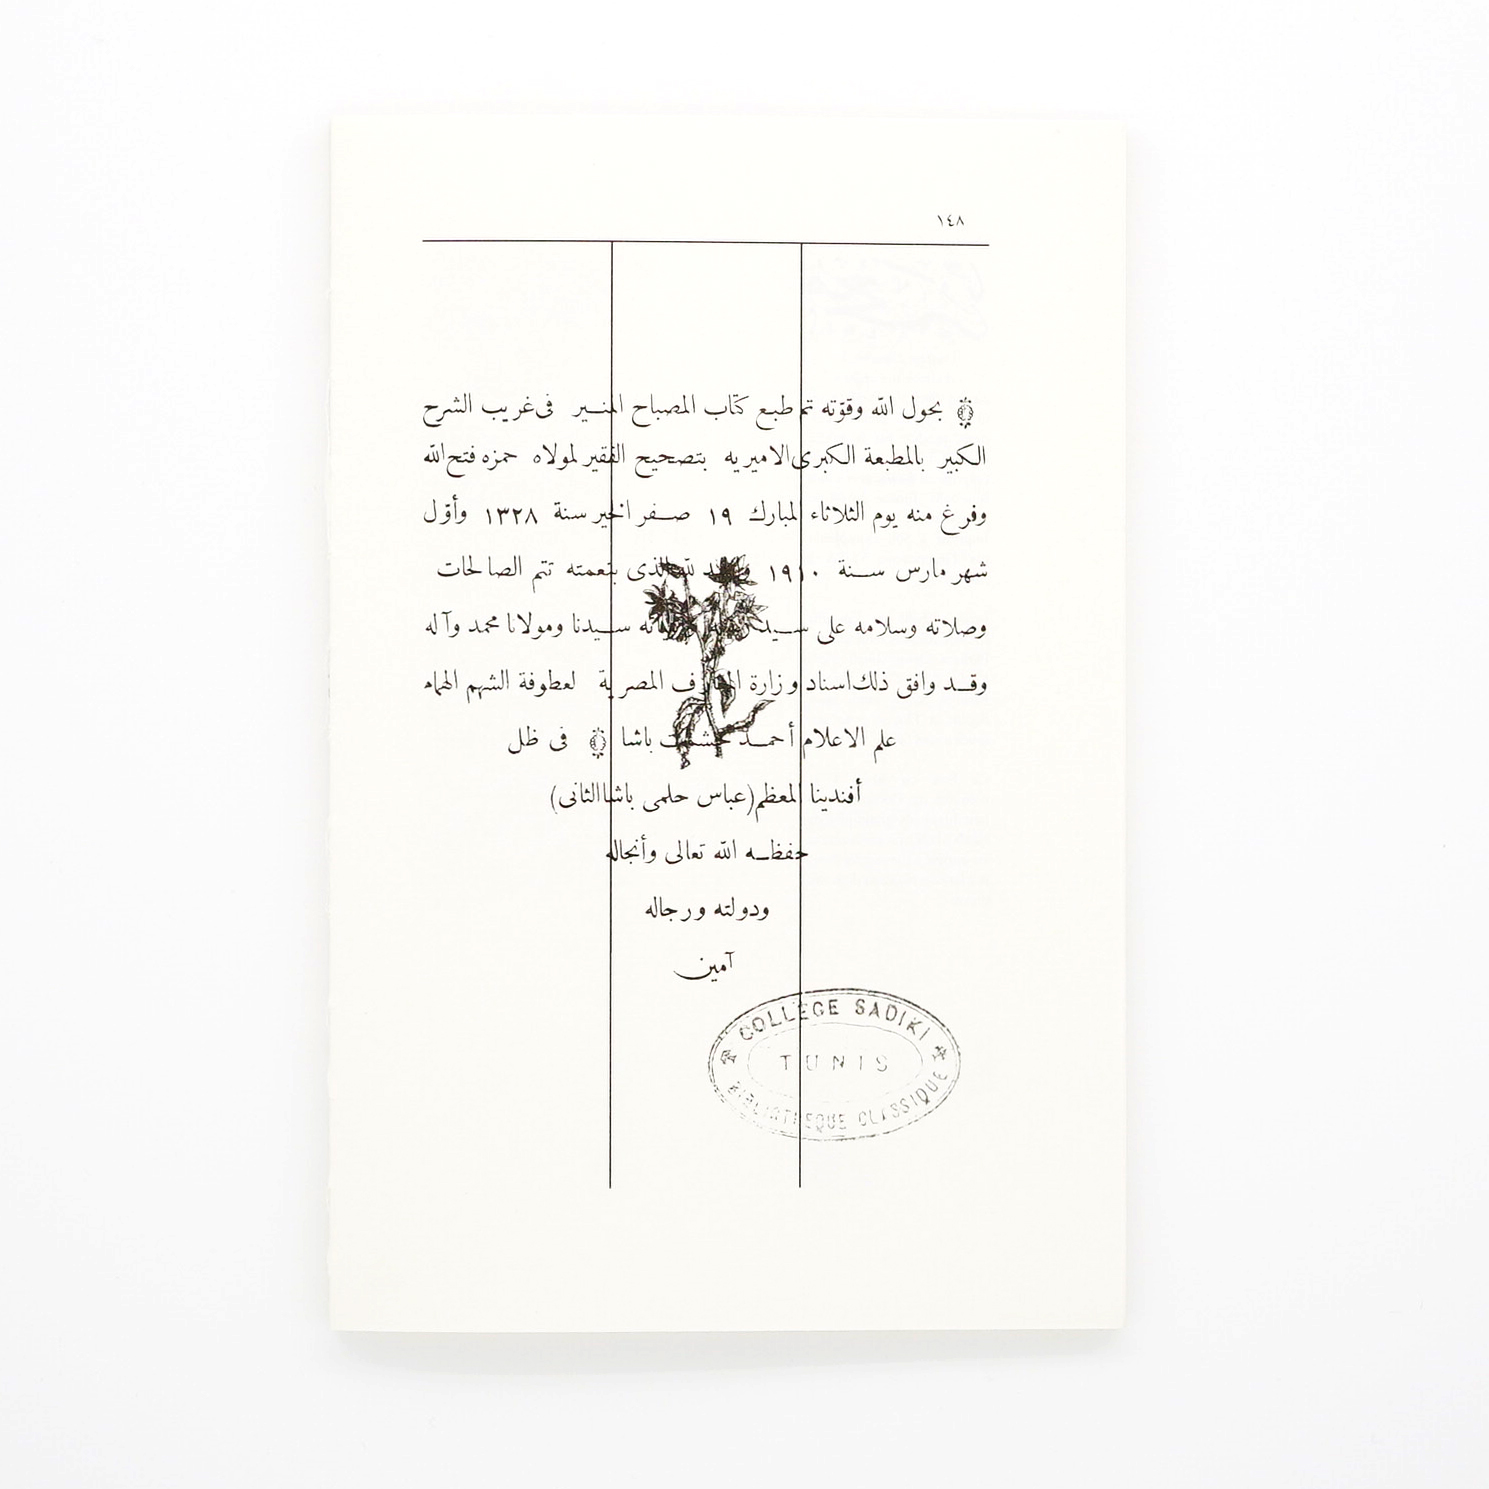 ١٤٨
بحول الله وقوّته تم طبع كتاب المصباح المنير فى غريب الشرح
الكبير بالمطبعة الكبرى الاميريه بتصحيح الفقير لمولاه حمزه فتح الله
وفرغ منه يوم الثلاثاء المبارك ١٩ صفر الخير سنة ١٣٢٨ وأوّل
شهر مارس سنة ١٩١٠ لله الذى بنعمته تتم الصالحات
وصلاته وسلامه على سيد سيدنا ومولانا محمد وآله
وقد وافق ذلك اسناد وزارة المعارف المصرية لعطوفة الشهم الهمام
علم الاعلام أحمد حشمت باشا فى ظل
أفندينا المعظم (عباس حلمى باشا الثانى)
حفظه الله تعالى وأنجاله
ودولته ورجاله
آمين
COLLEGE SADIKI
TUNIS
BIBLIOTHEQUE CLASSIQUE